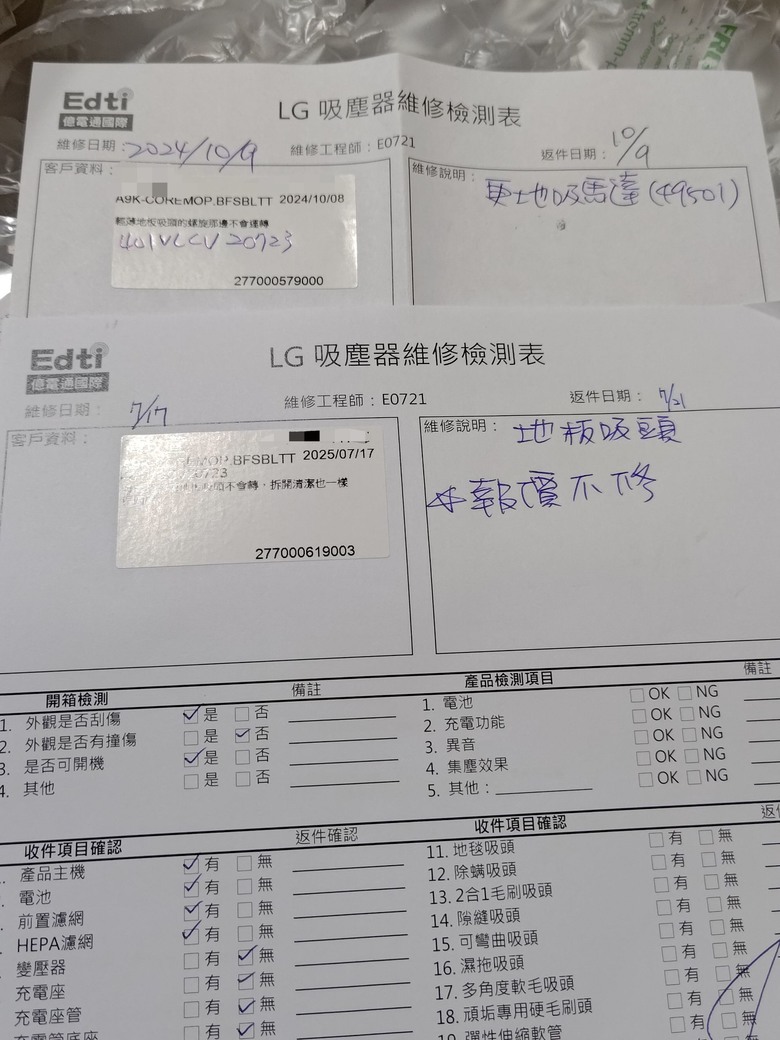 Edti
億電通國際
LG 吸塵器維修檢測表
維修日期：2024/10/9
維修工程師：E0721
返件日期：10/9
客戶資料：
A9K-COREMOP.BFSBLTT 2024/10/08
地板吸頭的螺旋那邊不會運轉
401VLCV20723
277000579000
維修說明：
更地吸馬達(49501)
Edti
億電通國際
LG 吸塵器維修檢測表
維修日期：7/17
維修工程師：E0721
返件日期：7/21
客戶資料：
MOP.BFSBLTT 2025/07/17
0723
吸頭不會轉，拆開清潔也一樣
277000619003
維修說明：
地板吸頭
報價不修
開箱檢測 備註
1. 外觀是否刮傷 是 否
2. 外觀是否有撞傷 是 否
3. 是否可開機 是 否
4. 其他 是 否
產品檢測項目 備註
1. 電池 OK NG
2. 充電功能 OK NG
3. 異音 OK NG
4. 集塵效果 OK NG
5. 其他： OK NG
收件項目確認 返件確認
產品主機 有 無
電池 有 無
前置濾網 有 無
HEPA濾網 有 無
變壓器 有 無
充電座 有 無
充電座管 有 無
充電管底座 有 無
收件項目確認 返
11. 地毯吸頭 有 無
12. 除螨吸頭 有 無
13. 2合1毛刷吸頭 有 無
14. 隙縫吸頭 有 無
15. 可彎曲吸頭 有 無
16. 濕拖吸頭 有 無
17. 多角度軟毛吸頭 有 無
18. 頑垢專用硬毛刷頭 有 無
19. 彈性伸縮軟管 有 無